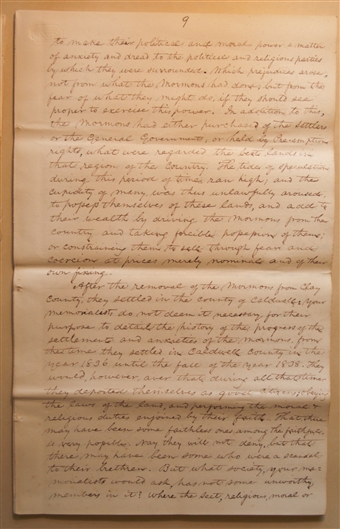 9
to make their political and moral power a matter
of anxiety and dread to the political and religious parties
by which they were surrounded. Which prejudices arose,
not from what the Mormons had done; but from the
fear of what they might do, if they should see
proper to exercise this power. In addition to this,
the Mormons had either purchased of the settlers
or the General Government, or held by Preemption
rights, what were regarded the best lands in
that region of the Country. The tide of speculation
during this period of time ran high; and the
cupidity of many was thus unlawfully aroused
to possess themselves of these lands, and add to
their wealth by driving the Mormons from the
country and taking forcible possession of them;
or constraining them to sell through fear and
coercion at prices merely nominal and of their
own fixing.
After the removal of the Mormons from Clay
County, they settled in the county of Caldwell. Your
memorialists do not deem it necessary, for their
purpose to detail the history of the progress of the
settlement and anxieties of the Mormons, from
the time they settled in Caldwell County in the
year 1836 until the fall of the year 1838. They
would, however aver that during all that time
they deported themselves as good citizens, obeying
the laws of the land, and performing the moral &
religious duties enjoined by their faith. That there
may have been some faithless ones among the faithful,
is very possible. Nay they will not deny, but that
there, may have been some who were a scandal
to their brethren. But what society, your me-
morialists would ask, has not some unworthy
members in it? Where the sect, religious, moral or